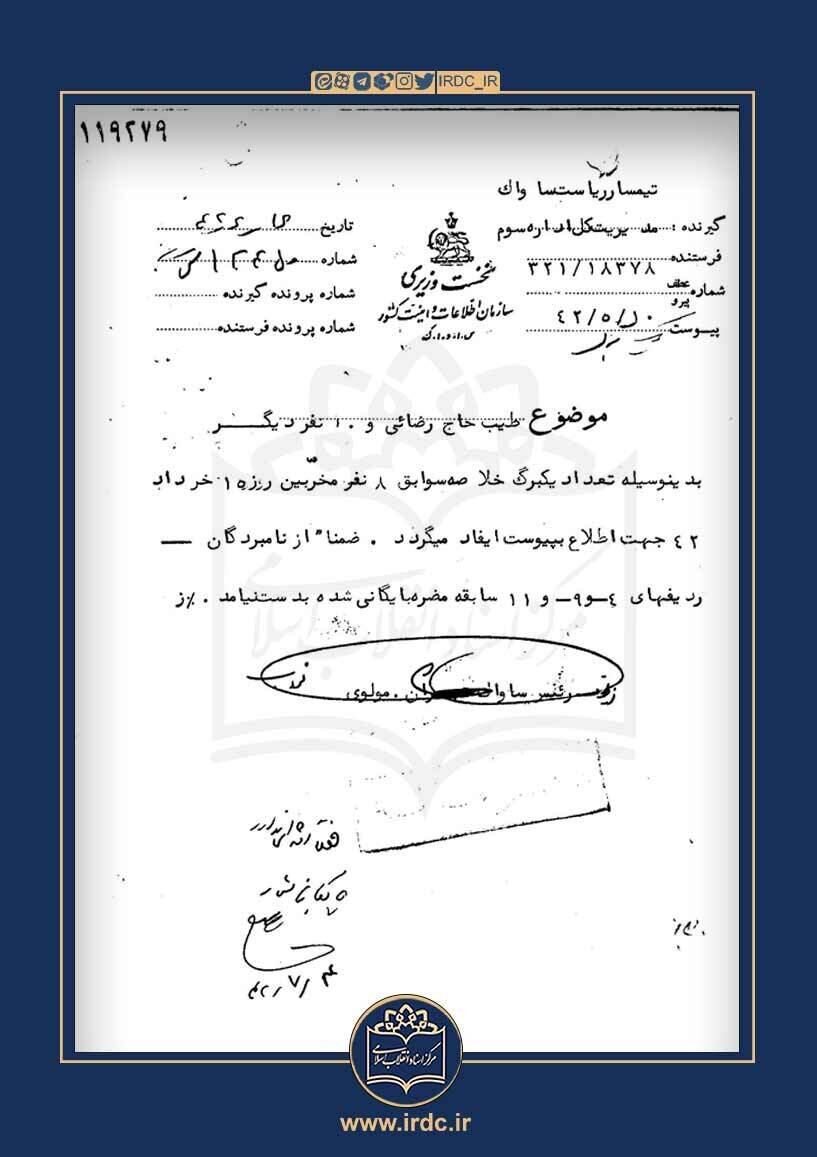 IRDC_IR
۱۱۹۲۷۹
تیمسار ریاست ساواك
گیرنده : مدیریت کل اداره سوم
فرستنده
۳۲۱/۱۸۳۷۸
شماره عطف پیرو
۴۲/۵/۱۰
پیوست
نخست وزیری
سازمان اطلاعات و امنیت کشور
س.ا.و.ا.ک
تاریخ
شماره
شماره پرونده گیرنده
شماره پرونده فرستنده
موضوع طیب حاج رضائی و ۱۰ نفر دیگر
بدینوسیله تعداد یکبرگ خلاصه سوابق ۸ نفر مخربین روز ۱۵ خرداد
۴۲ جهت اطلاع بپیوست ایفاد میگردد . ضمنا" از نامبردگان —
ردیفهای ۴ـ و۹ـ و ۱۱ سابقه مضره بایگانی شده بدست نیامد . %ز
رئیس ساواك تهران . مولوی
بایگانی شود
۴۲/۷/۳
مرکز اسناد انقلاب اسلامی
مرکز اسناد انقلاب اسلامی
www.irdc.ir